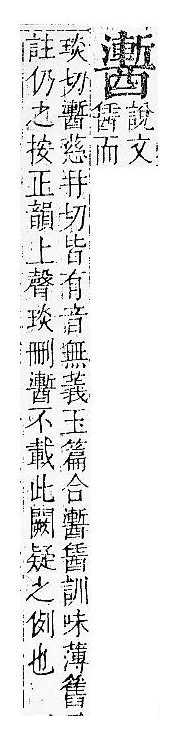 說文
而
琰切慈冉切皆有音無義玉篇合訓味薄舊
註仍之按正韻上聲琰刪不載此闕疑之例也